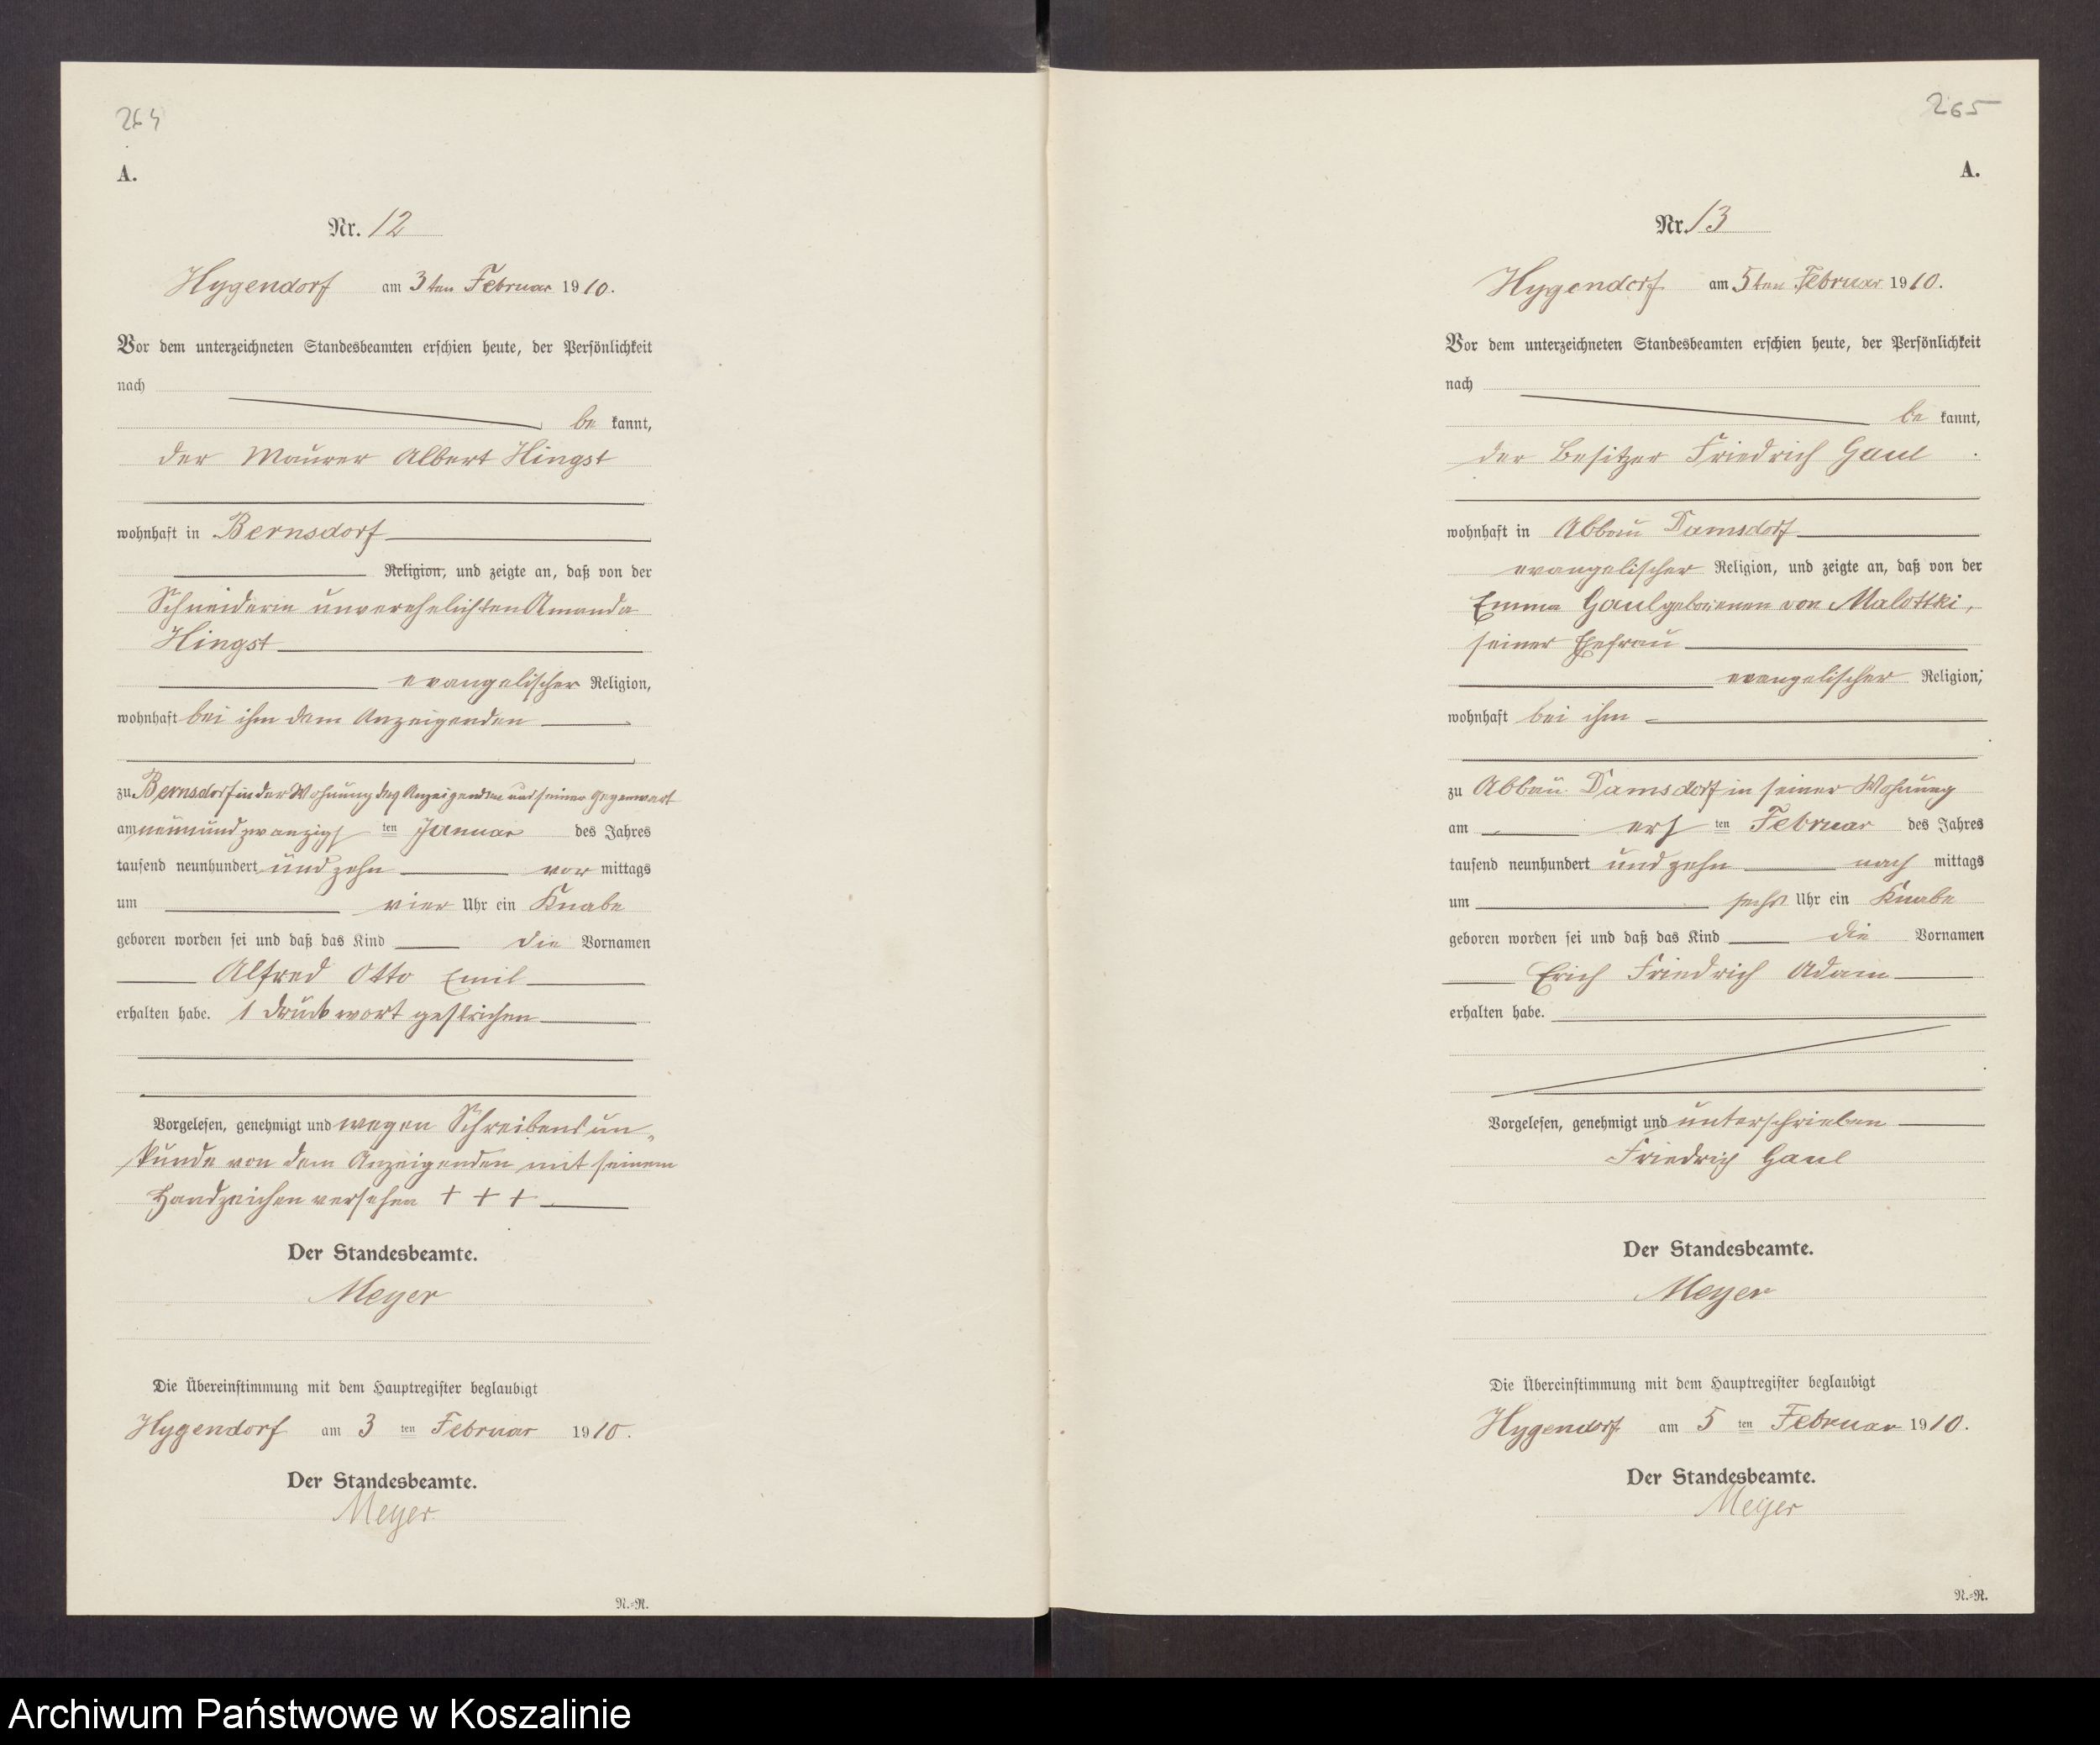 264
A.
Nr. 12
Hygendorf am 3ten Februar 1910.
Vor dem unterzeichneten Standesbeamten erschien heute, der Persönlichkeit
nach
be kannt,
der Maurer Albert Hingst
wohnhaft in Bernsdorf
Religion, und zeigte an, daß von der
Schneiderin unverehelichten Amanda
Hingst
evangelischer Religion,
wohnhaft bei ihm dem Anzeigenden
zu Bernsdorf in der Wohnung des Anzeigenden und seiner Gegenwart
am neunundzwanzigsten Januar des Jahres
tausend neunhundert und zehn vor mittags
um vier Uhr ein Knabe
geboren worden sei und daß das Kind die Vornamen
Alfred Otto Emil
erhalten habe. 1 Druckwort gestrichen
Vorgelesen, genehmigt und wegen Schreibensun-
kunde von dem Anzeigenden mit seinem
Handzeichen versehen + + +
Der Standesbeamte.
Meyer
Die Übereinstimmung mit dem Hauptregister beglaubigt
Hygendorf am 3 ten Februar 1910.
Der Standesbeamte.
Meyer
N.-R.
265
A.
Nr. 13
Hygendorf am 5ten Februar 1910.
Vor dem unterzeichneten Standesbeamten erschien heute, der Persönlichkeit
nach
be kannt,
der Besitzer Friedrich Gaul
wohnhaft in Abbau Damsdorf
evangelischer Religion, und zeigte an, daß von der
Emma Gaul geborenen von Malottki,
seiner Ehefrau
evangelischer Religion,
wohnhaft bei ihm
zu Abbau Damsdorf in seiner Wohnung
am ersten Februar des Jahres
tausend neunhundert und zehn nach mittags
um sechs Uhr ein Knabe
geboren worden sei und daß das Kind die Vornamen
Erich Friedrich Adam
erhalten habe.
Vorgelesen, genehmigt und unterschrieben
Friedrich Gaul
Der Standesbeamte.
Meyer
Die Übereinstimmung mit dem Hauptregister beglaubigt
Hygendorf am 5 ten Februar 1910.
Der Standesbeamte.
Meyer
N.-R.
Archiwum Państwowe w Koszalinie